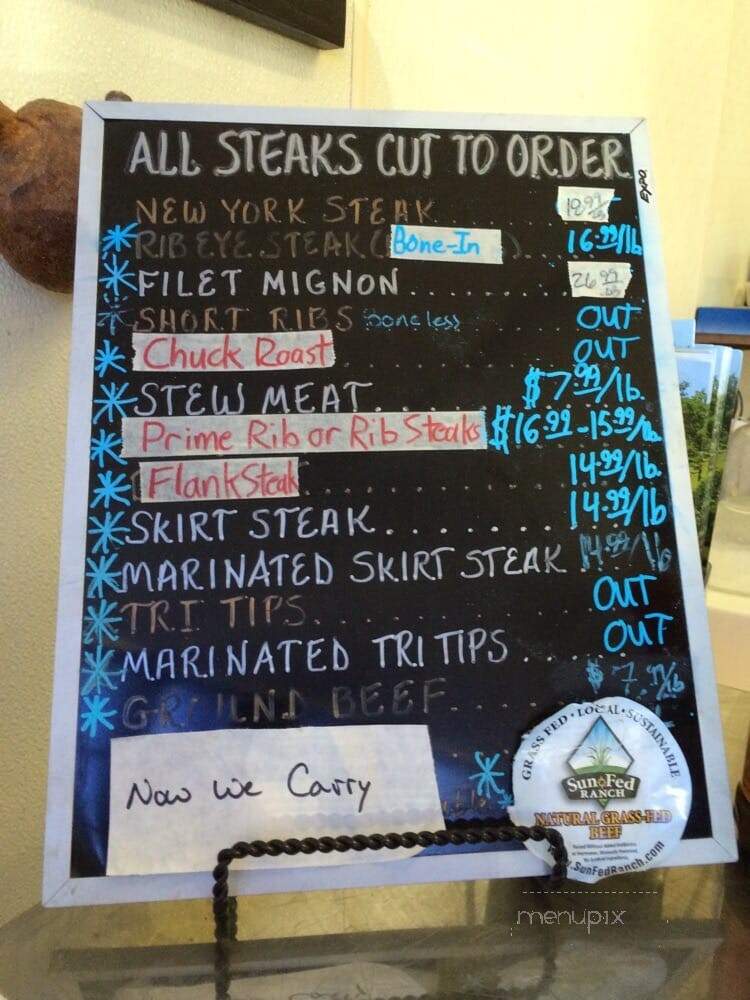 ALL STEAKS CUT TO ORDER
EXPO
NEW YORK STEAK 18.99 lb
* RIB EYE STEAK (Bone-In) 16.99/lb
* FILET MIGNON 26.99 lb
* SHORT RIBS Boneless OUT
* Chuck Roast OUT
* STEW MEAT $7.99/lb.
* Prime Rib or Rib Steaks $16.99-15.99/lb
* Flank Steak 14.99/lb.
* SKIRT STEAK 14.99/lb
* MARINATED SKIRT STEAK 14.99/lb
* TRI TIPS OUT
* MARINATED TRI TIPS OUT
* GROUND BEEF $7.99/lb
Now we Carry
*
GRASS FED • LOCAL • SUSTAINABLE
SunFed
RANCH
NATURAL GRASS-FED
BEEF
www.SunFedRanch.com
menupix